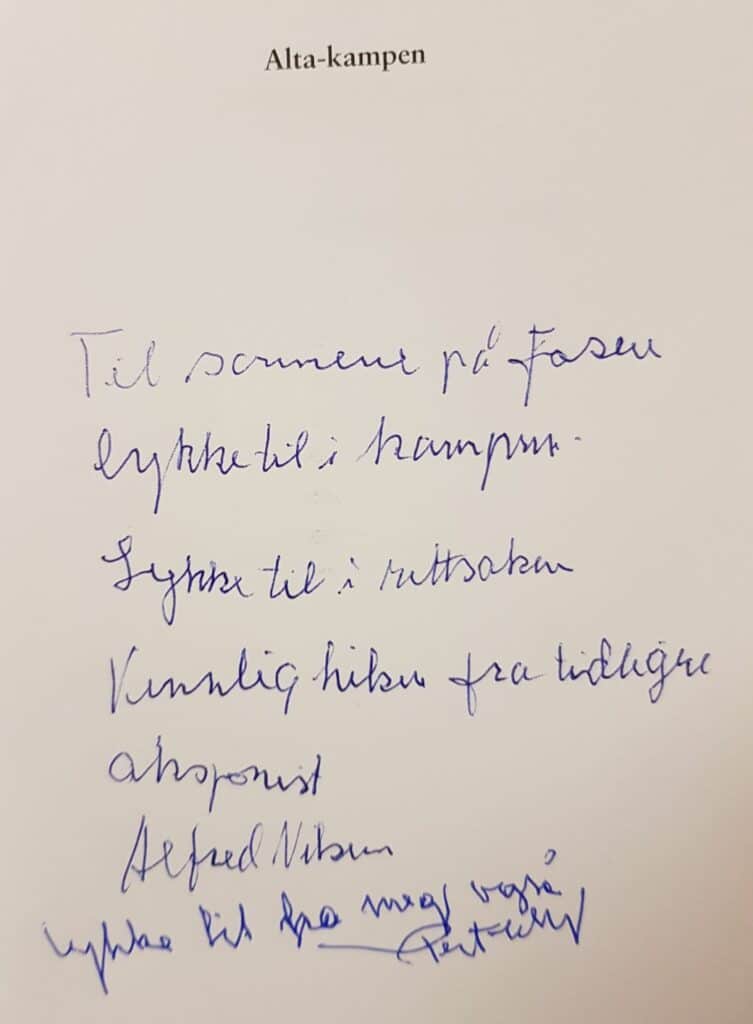 Alta-kampen
Til samene på Fosen
lykke til i kampen.
Lykke til i rettsaken
Vennlig hilsen fra tidligre
aksjonist
Alfred Nilsen
Lykke til fra meg også